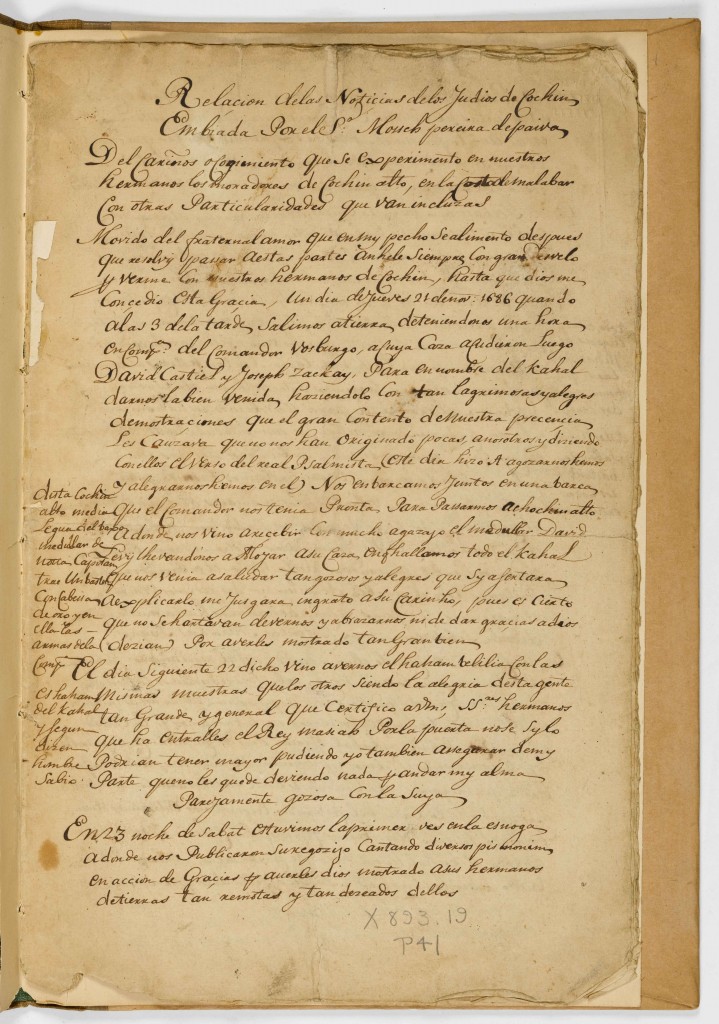 Relacion delas Noticias delos Judios de Cochin
Embiada Por el Sr. Mosseh pereira de paiva
Del Carinos o cogimiento que se experimento en nuestros
hermanos los moradores de Cochin alto, en la Costa de malabar
Con otras Particularidades que van incluzas
Movido del fraternal amor que en my pecho se alimento despues
que resolvy passar a estas partes Anhele siempre Con gran
y verme Con nuestros hermanos de Cochin, hasta que dios me
Concedio esta Gracia, Un dia de Jueves 21 de nov: 1686 quando
a las 3 de la tarde salimos a tierra deteniendonos una hora
en Comp.a del Comandor Vosburgo, a Cuya Caza acudieron Luego
David Castiel y Joseph Zackay, Para en nombre del Kahal
darnos la bien venida haziendolo Con tan lagrimosas y alegres
demostraciones que el gran Contento de Nuestra precencia
Les Cauzava que no nos han originado pocas, a nosotros y diziendo
Con ellos el Verso del real Psalmista (este dia hizo A. agozarnos hemos
y alegrarnos hemos en el) Nos enbarcamos Juntos en una barca
Que el Comandor nos tenia Pronta Para Passarmos a Chochin alto
Adonde nos vino a recebir Con mucho agazajo el mudullar David
Levy llevandonos a Alojar a su Caza en q hallamos todo el kahal
Que nos venia a saludar tan gozosos y alegres que sy a fentara
de explicarlo me Jusgara ingrato a su Carinho, pues es Cierto
que no se hartavan de vernos y abrazarnos ni de dar gracias a dios
(dezian) Por averles mostrado tan Gran bien
desta Cochin
alto media
Legua del
mudullar de
nota Capitan
trae Un baston
Con Cabessa
de oro y en
ella las
armas dela
Comp.a
El dia Siguiente 22 dicho vino avernos el haham belilia Con las
Mismas muestras que los otros siendo la alegria desta gente
tan Grande y general que Certifico a Vms SS.res hermanos
que ha entralles el Rey masiah Por la puerta no se sy lo
Podrian tener mayor pudiendo yo tambien asegurar de my
Parte que no les quede deviendo nada y andar my alma
Parejamente gozosa Con la Suya
es haham
del kahal
y segun
dizen
hombre
Sabio.
En 23 noche de sabat estuvimos la primer ves en la esnoga
Adonde nos Publicaron su regozijo Cantando diversos pismonim
en accion de Gracias p averles dios mostrado a sus hermanos
de tierras tan remotas y tan dezeados dellos
X 893.19
P41